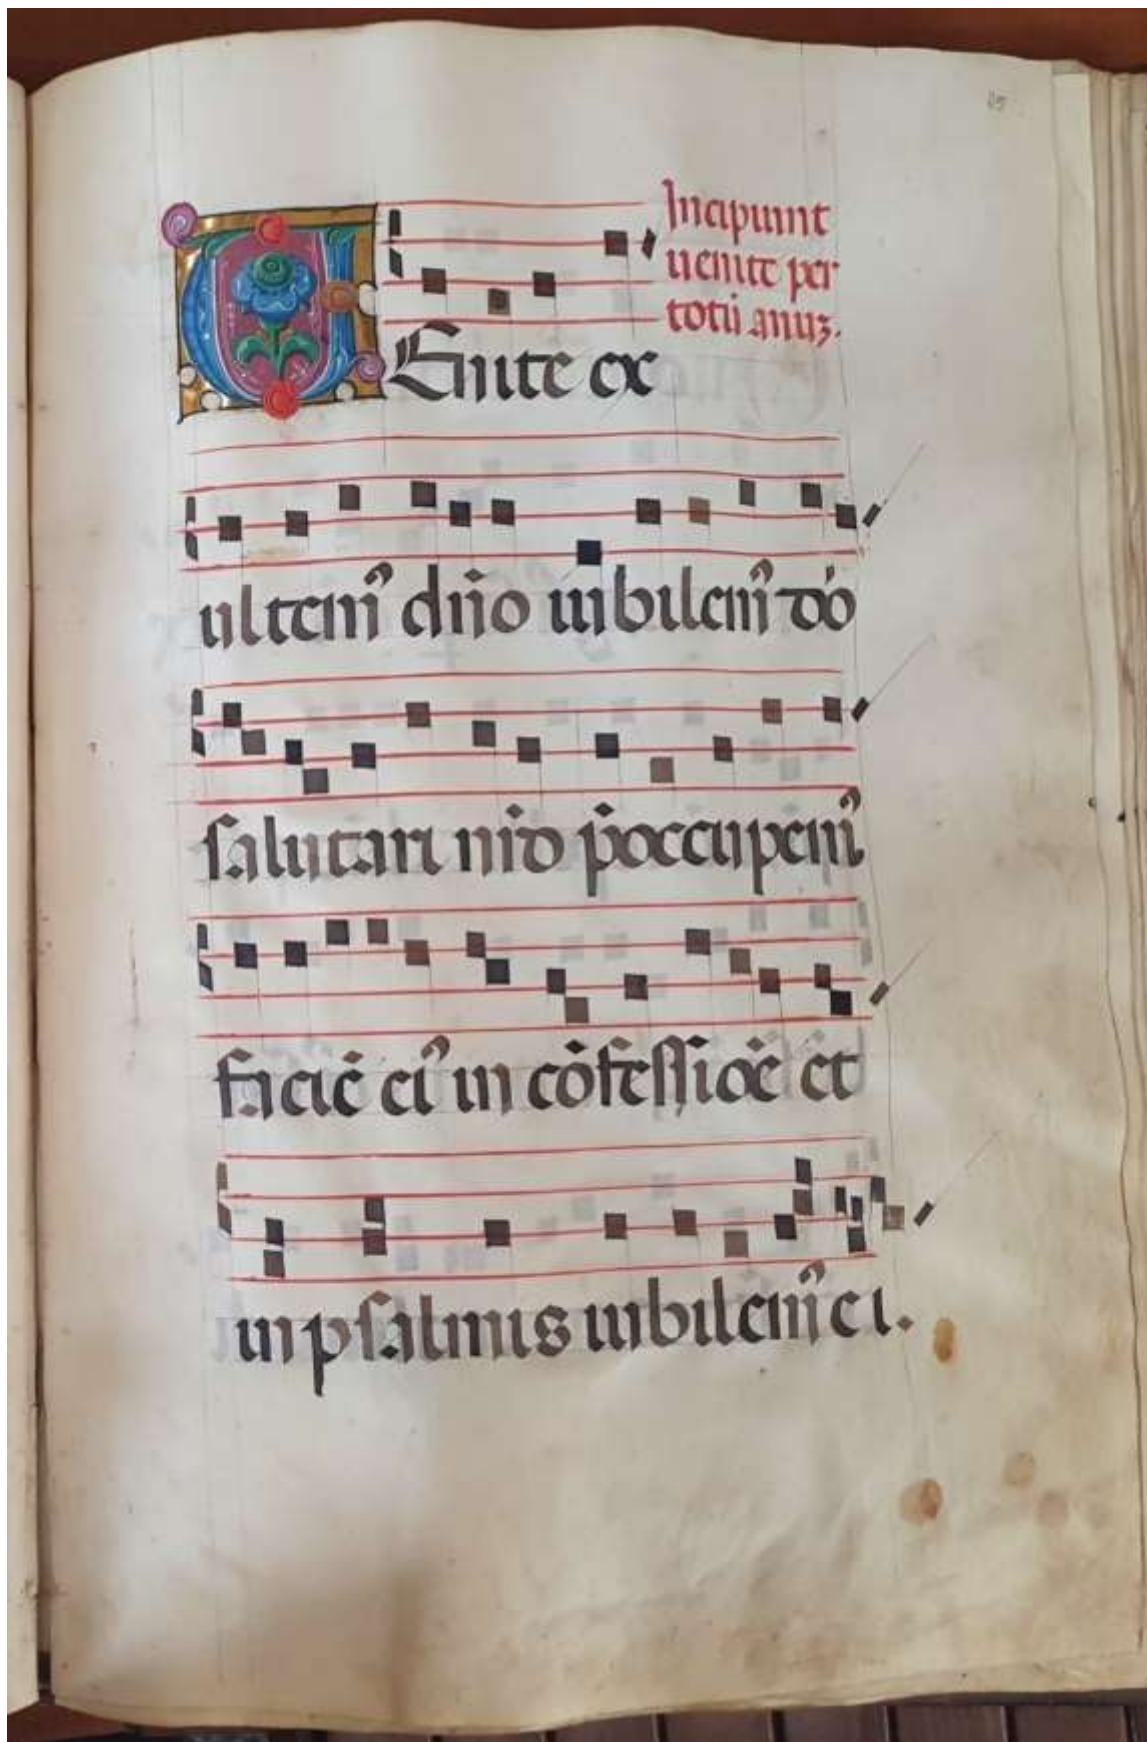 Incipiunt
uenite per
totū anuꝫ.
UEnite ex
ultemꝰ dño iubilemꝰ dō
salutari nr̄o p̄occupemꝰ
faciē eiꝰ in cōfessiōe et
in psalmis iubilemꝰ ei.